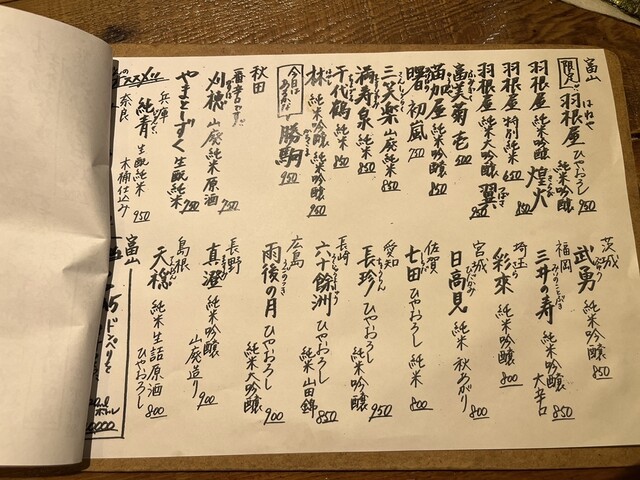 富山
限定 羽根屋 はねや ひやおろし 純米吟醸 950
羽根屋 純米吟醸 煌火 850
羽根屋 特別純米 650
羽根屋 純米大吟醸 翼 850
高美菊 壱 500
猫加屋 純米吟醸 750
曙 初嵐 750
三笑楽 山廃純米 850
満寿泉 純米 850
千代鶴 純米 850
林 純米吟醸 純米吟醸 950
今日はあるかな 勝駒 950
秋田
一番考えやすす
刈穂 山廃純米原酒 750
やまとしずく 生酛純米 750
兵庫 純青 生酛純米 950
奈良 木桶仕込み
茨城 武勇 純米吟醸 850
福岡 三井の寿 みいのことぶき 純米吟醸 大辛口 850
埼玉 彩來 純米吟醸 800
宮城 日高見 ひたかみ 純米 秋あがり 800
佐賀 七田 ひやおろし 純米 800
愛知 長珍 ひやおろし 純米吟醸 950
長崎 六十餘洲 ひやおろし 純米 山田錦 850
広島 雨後の月 うごのつき ひやおろし 純米大吟醸 900
長野 真澄 純米吟醸 山廃造り 900
島根 天穏 純米生詰原酒 ひやおろし 800
富山